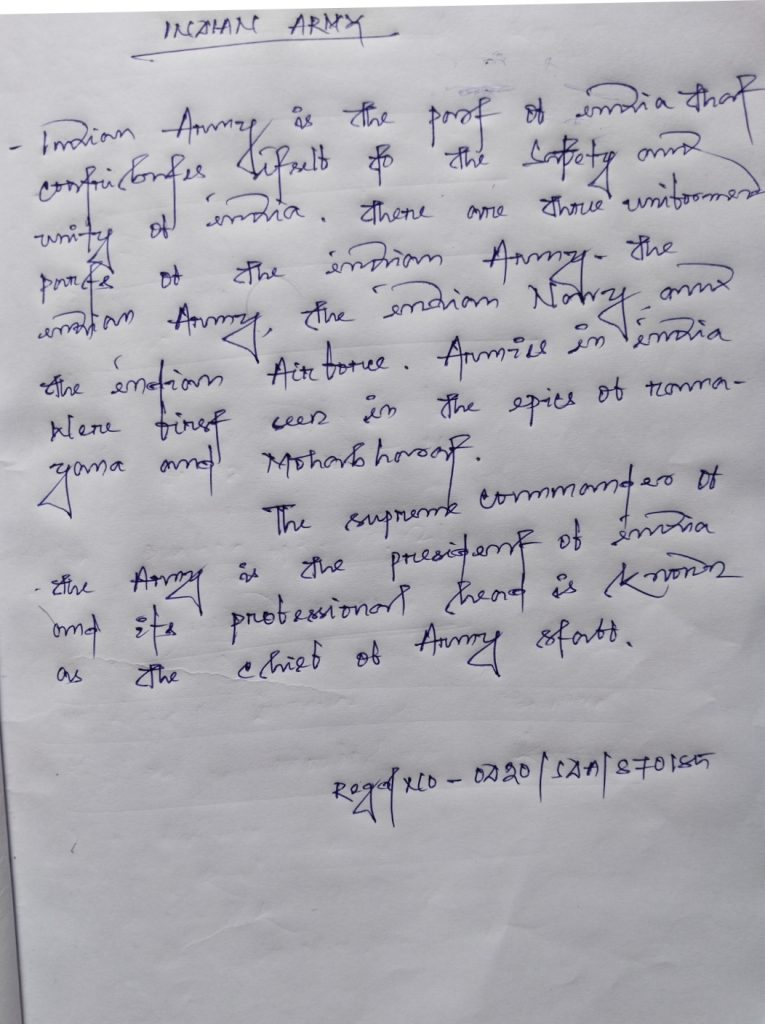 INDIAN ARMY
- Indian Army is the part of india that
contributes itself to the Safety and
unity of india. There are three uniformed
parts of the indian Army - the
indian Army, the indian Navy and
the indian Airforce. Armies in india
Were first seen in the epics of rama-
yana and Mohabharat.
The supreme commander of
the Army is the president of india
and its professional head is known
as the chief of Army staff.
Regd No - OD20/SDA/870185